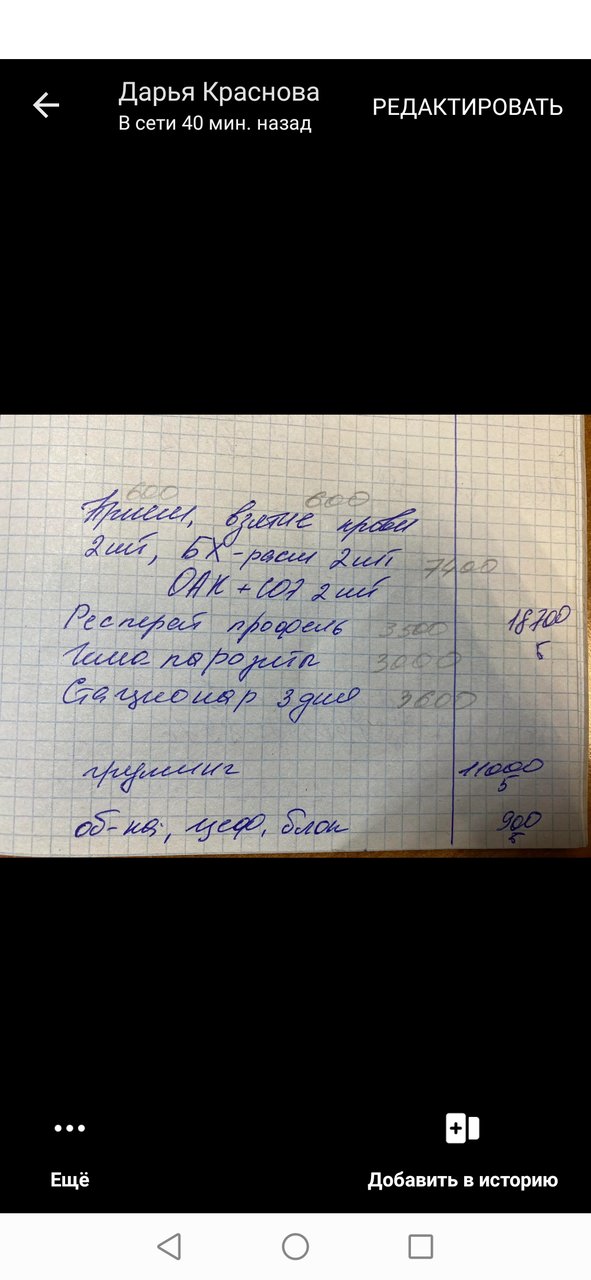 Дарья Краснова
В сети 40 мин. назад
РЕДАКТИРОВАТЬ
600 600
Прием, взятие крови
2шт, БХ-расш 2шт 7400
ОАК + СОЭ 2шт
Респират профель 3500 18700
б
Гема паразиты 3000
Стационар 3 дня 3600
груминг 11000
б
об-ка, цеф, блок 900
б
Ещё
Добавить в историю